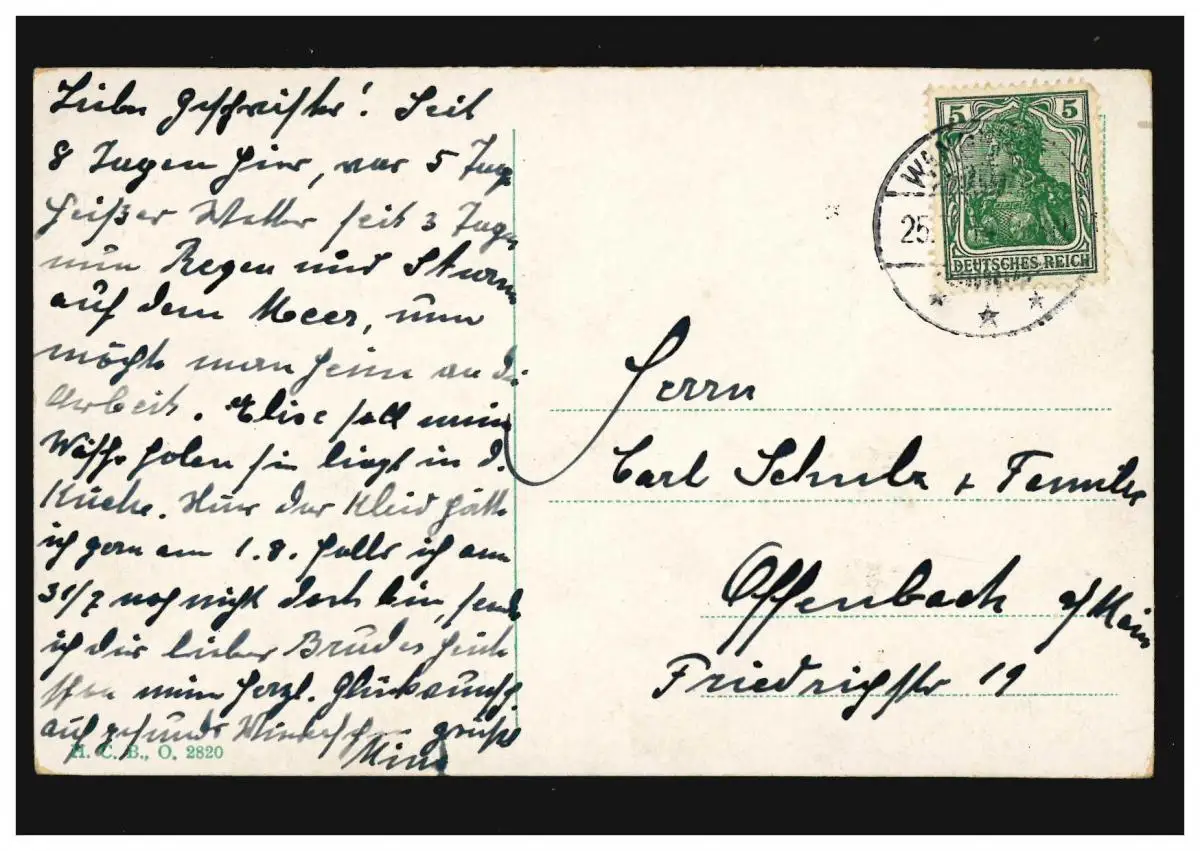 Liebe Geschwister! Seit
8 Tagen hier, war 5 Tage
heißes Wetter seit 3 Tagen
nun Regen und Sturm
auf dem Meer, nun
möchte man heim an die
Arbeit. Elise soll meine
Wäsche holen sie liegt in d.
Küche. Nur das Kleid hätte
ich gern am 1.8. falls ich am
31/7 noch nicht dort bin, sende
ich dir lieber Bruder heute
schon meine herzl. Glückwunsch
auf gesundes Wiedersehen grüßt
H. C. B., O. 2820
5 5
DEUTSCHES REICH
25.
Herrn
Carl Schulz + Familie
Offenbach a/Main
Friedrichstr 19